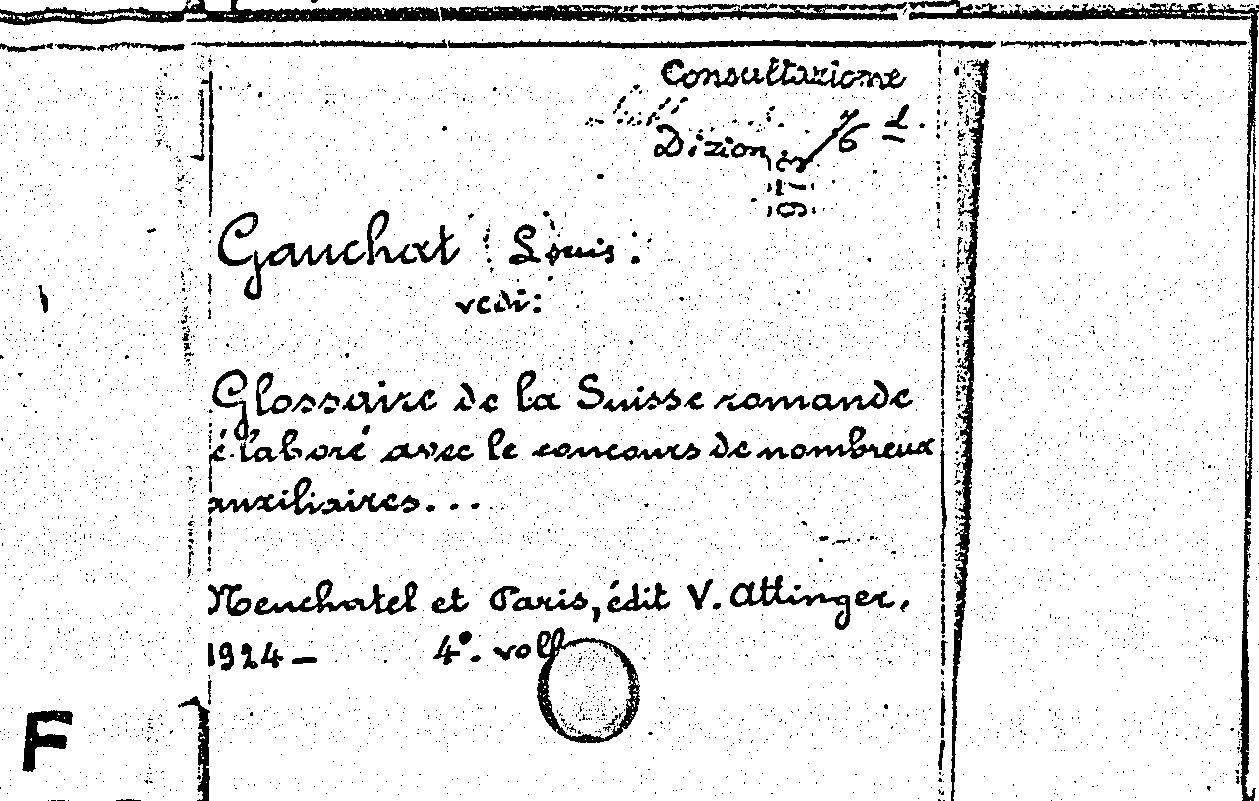 Consultazione
Dizion 6 d.
Gauchat Louis:
vedi:
Glossaire de la Suisse romande
élaboré avec le concours de nombreux
auxiliaires...
Neuchatel et Paris, édit V. Attinger,
1924 — 4°. voll
F